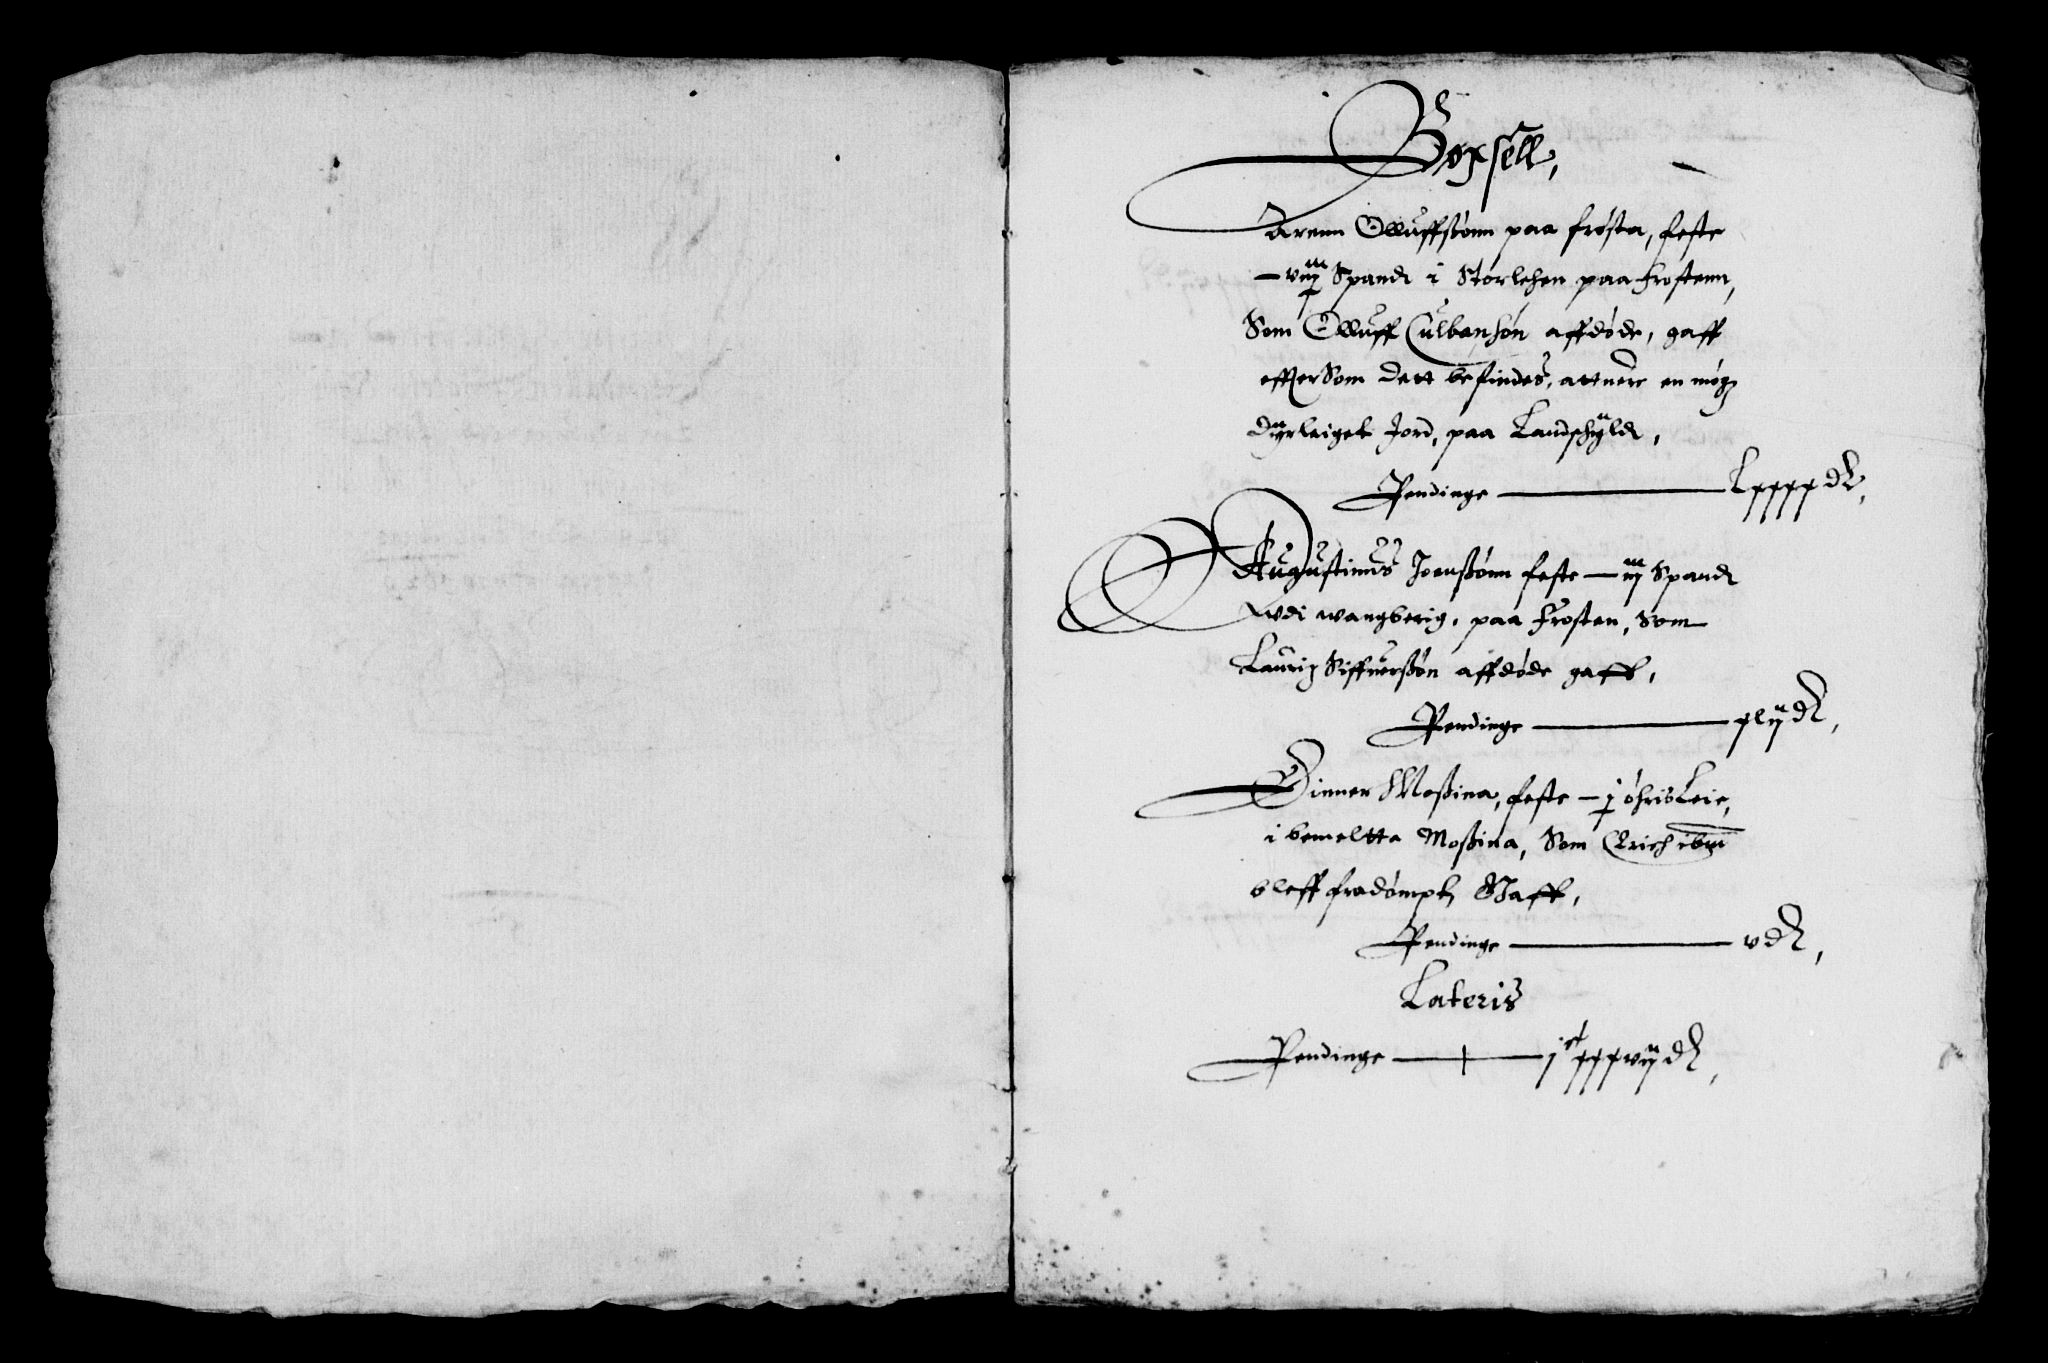 Boxsell,
Arenn Olluffßønn paa frøsta, feste
– viij Spandt i Storlehen paa Frostenn,
Som Olluff Culbensøn affdøde, gaff
effterSom dett befindes, att were en møgz
dyrleiget Jord, paa Landschyldt,
Pendinge — Lxxxx dlr,
Augustinus Joenßønn feste – iij Spandt
udi wangberig, paa Frosten, Som
Lauriz Siffuerßøn affdøde gafft,
Pendinge — xlij dlr,
Einner Moßina, feste – j øhris Leie,
i bemeltta Moßina, Som Erich ibm
bleff fradømpt, Gafft,
Pendinge — v dlr,
Lateris
Pendinge — jc xxxvij dlr,